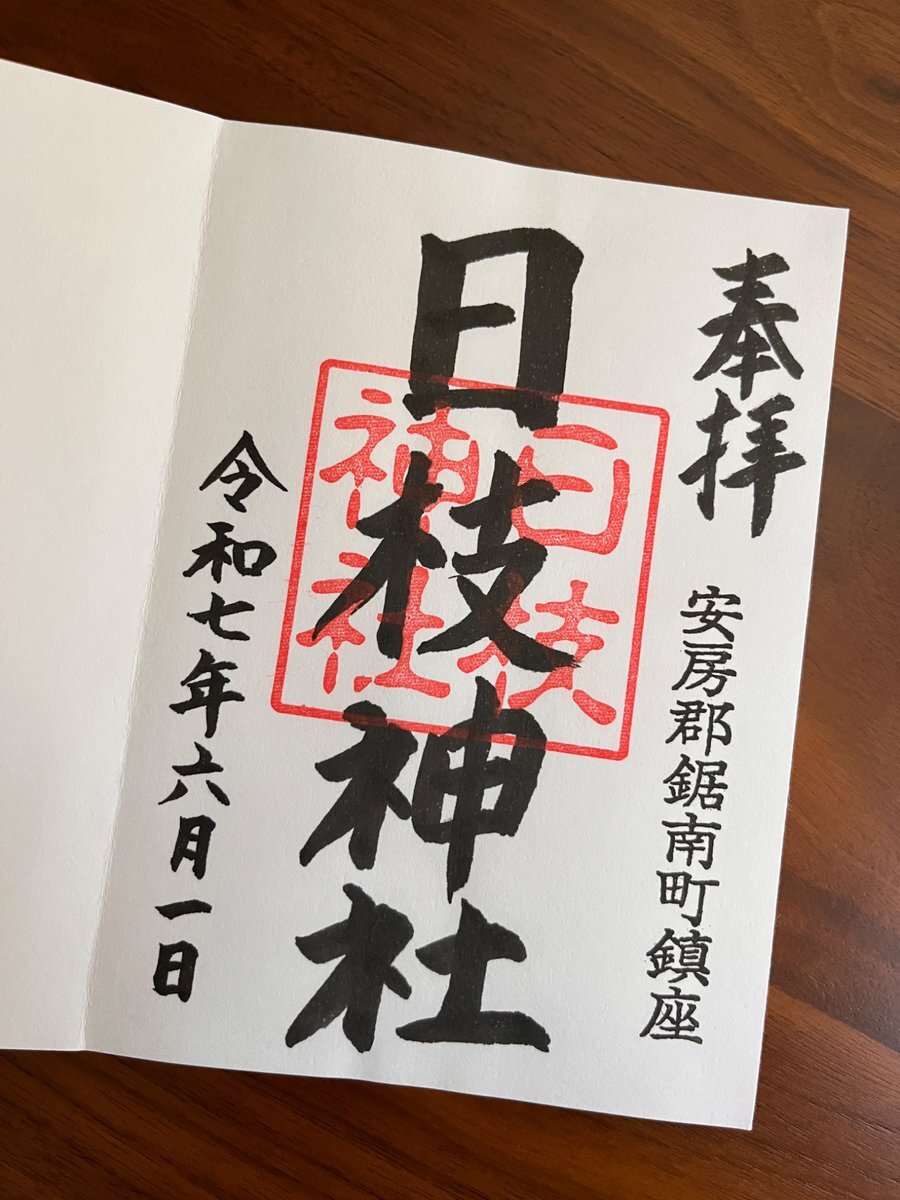 奉拝
安房郡鋸南町鎮座
日枝神社
日枝
神社
令和七年六月一日